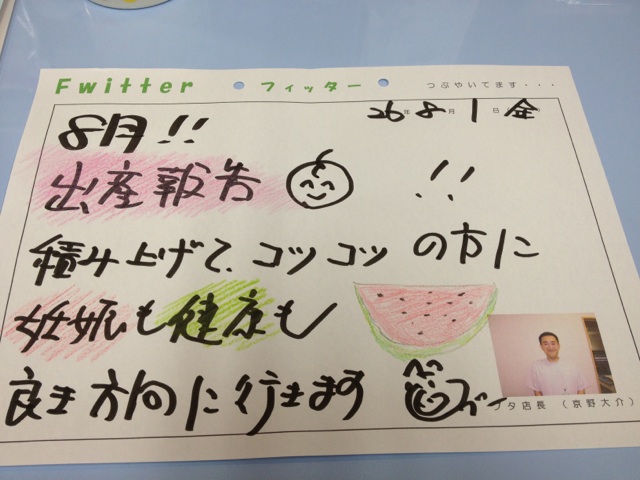 Fwitter フィッター つぶやいてます・・・
26年8月1日金
8月!!
出産報告 !!
積み上げて、コツコツの方に
妊娠も健康も
良き方向に行きます
タ店長（京野大介）